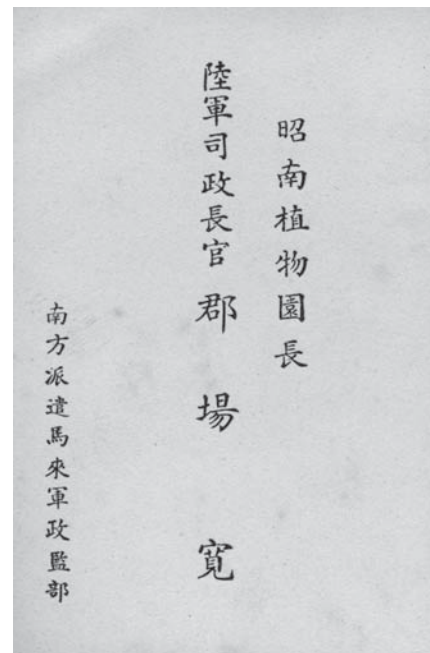 昭南植物園長
陸軍司政長官 郡場寛
南方派遣馬來軍政監部